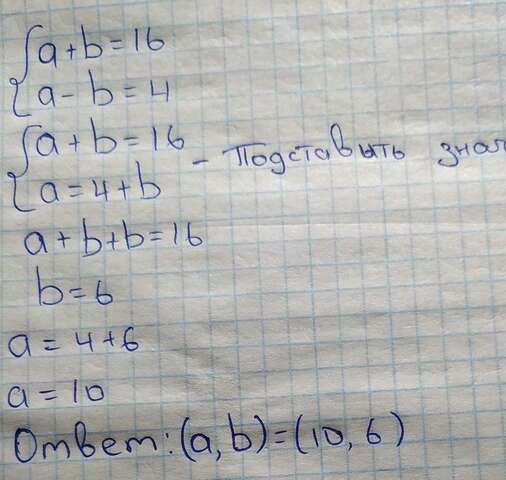 a + b = 16
a - b = 4
a + b = 16
a = 4 + b - Подставыть
a + b + b = 16
b = 6
a = 4 + 6
a = 10
Ответ: (a, b) = (10, 6)